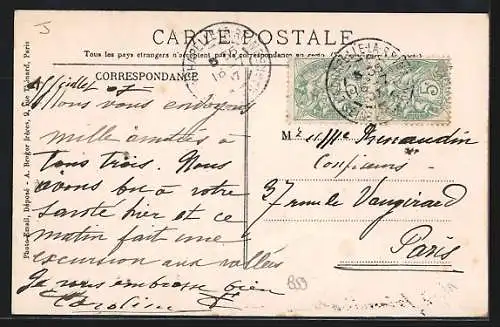 J
CARTE POSTALE
Tous les pays étrangers n'acceptent pas la correspondance au
CORRESPONDANCE
Photo-Email, Déposé - A. Breger frères, 9, Rue Thénard, Paris
juillet 07
Nous vous envoyons
mille amitiés à
tous trois. Nous
avons bu à votre
santé hier et ce
matin fait une
excursion aux vallées
Je vous embrasse bien
Caroline
5
5
Mr et Mme Renaudin
Confiseurs
37 rue de Vaugirard
Paris
859